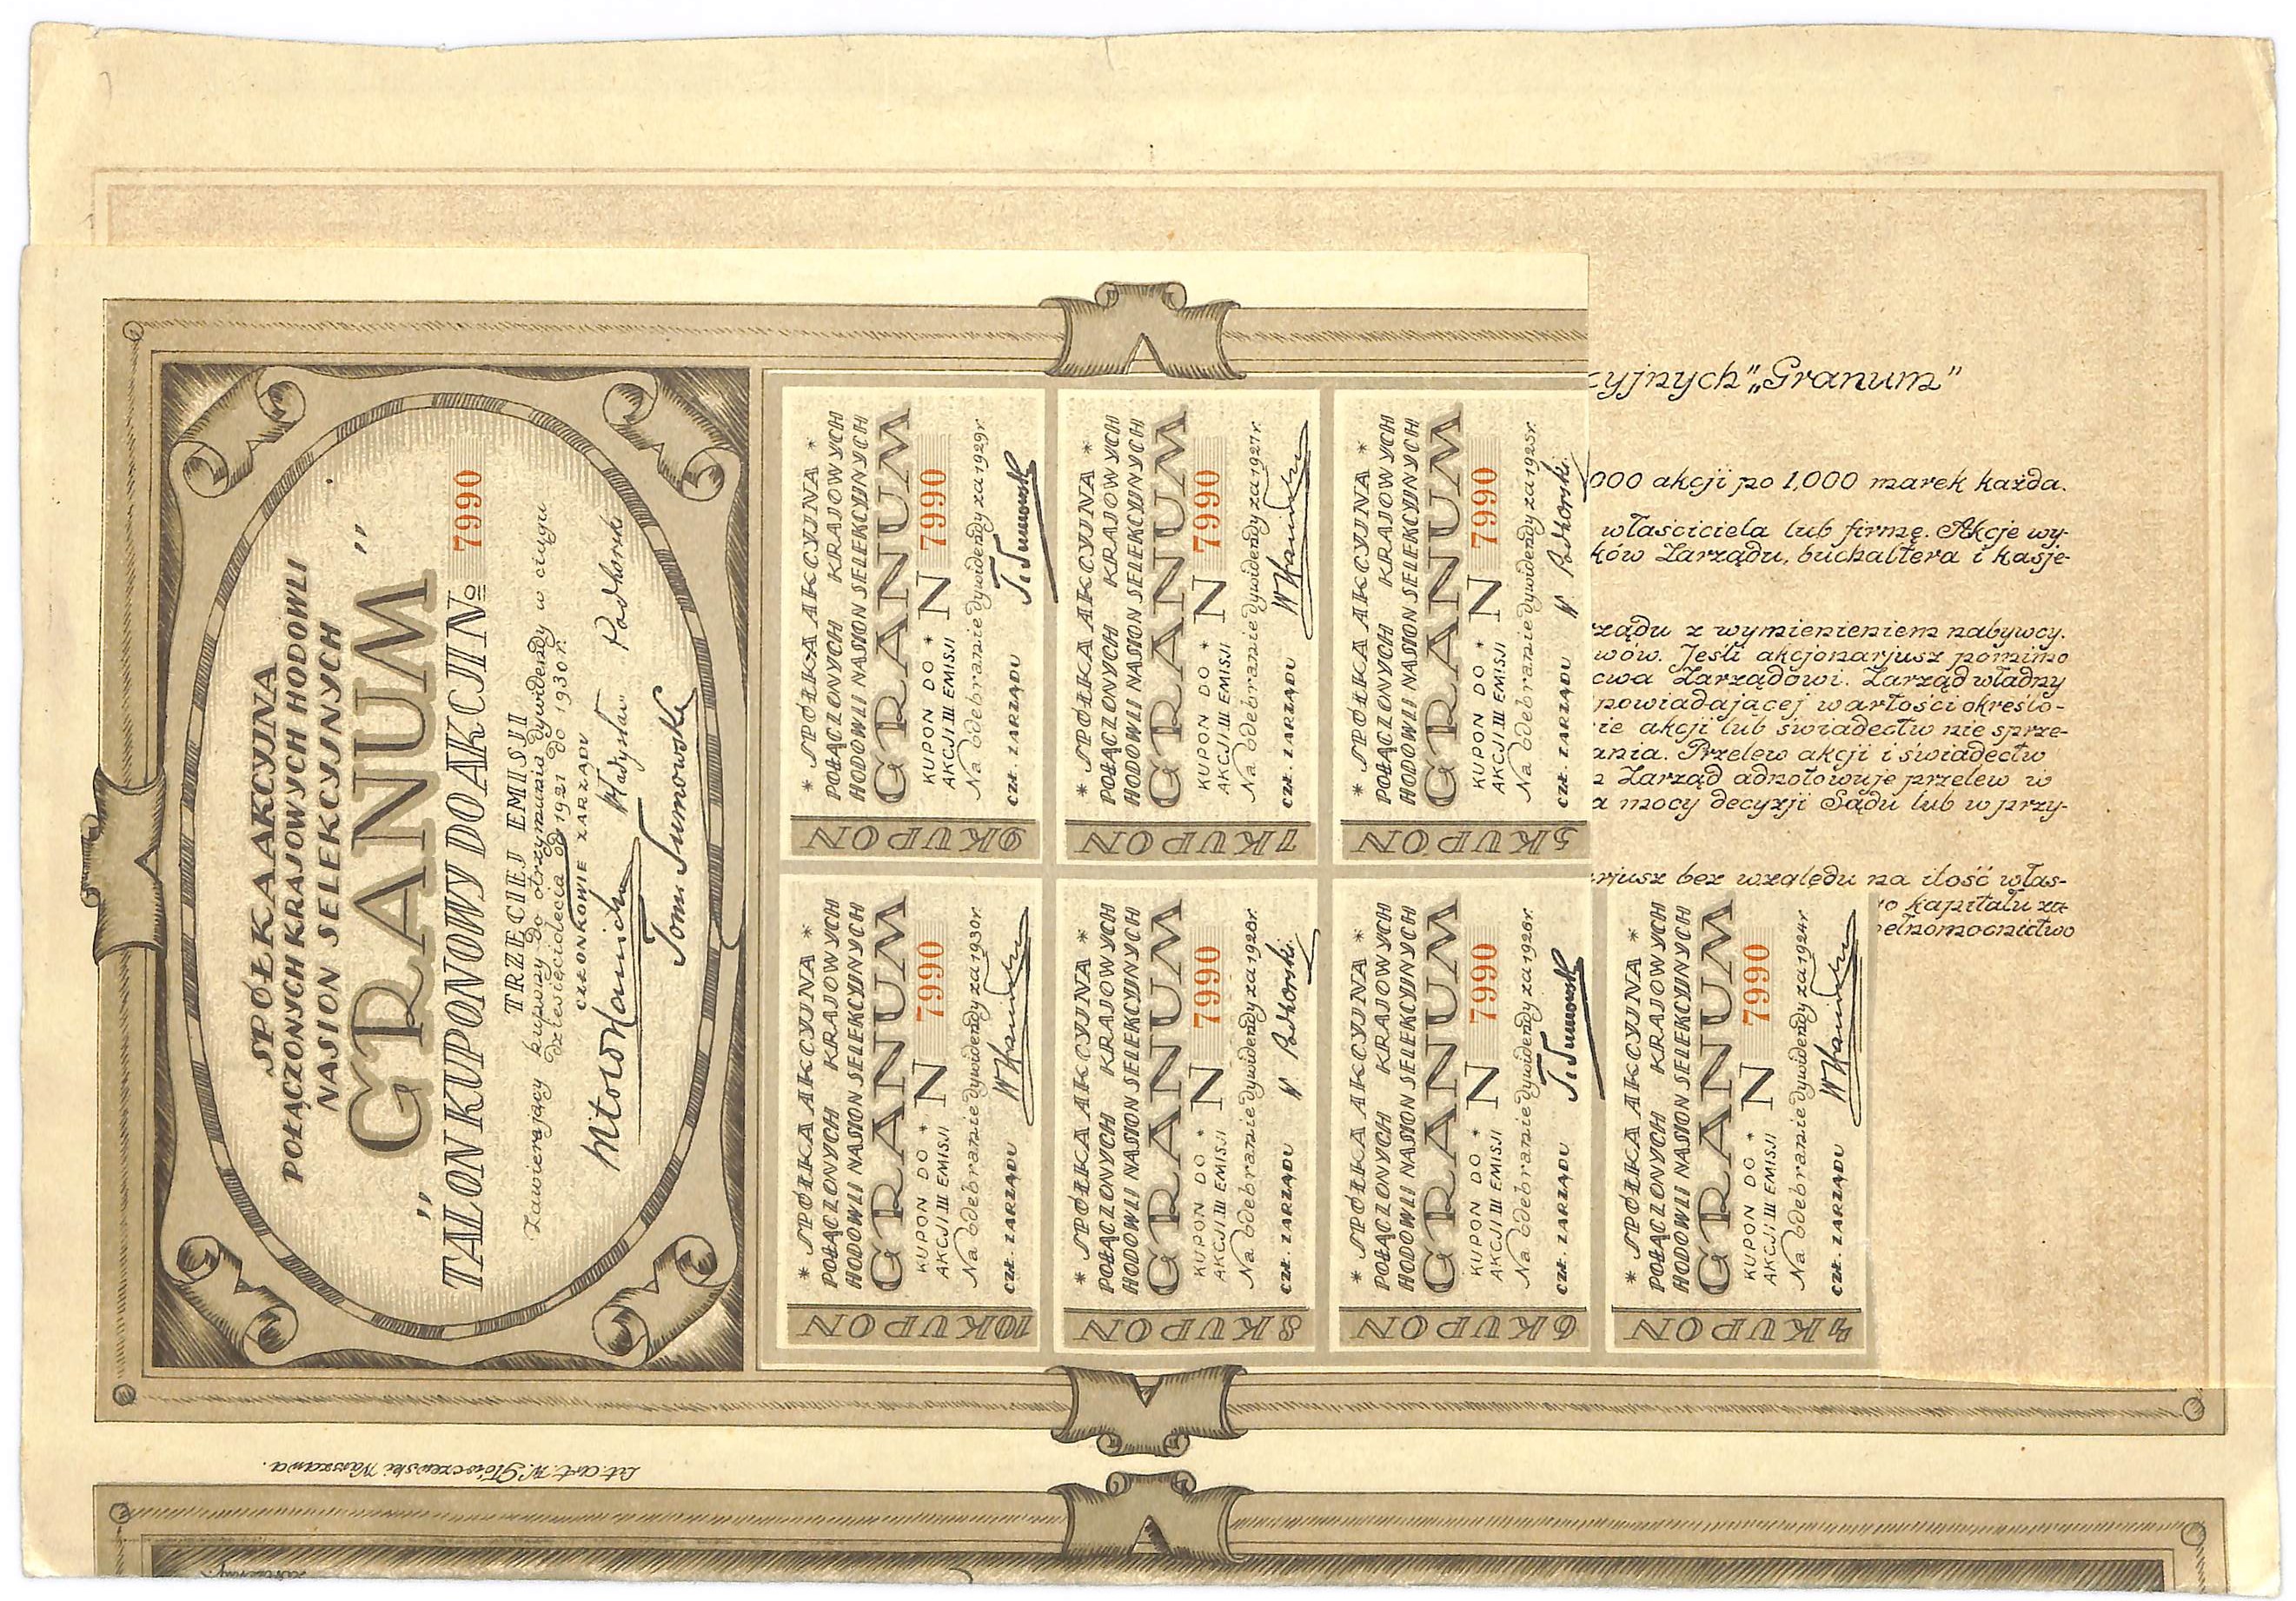 SPÓŁKA AKCYJNA
POŁĄCZONYCH KRAJOWYCH HODOWLI
NASION SELEKCYJNYCH
„GRANUM”
TALON KUPONOWY DO AKCJI № 7990
TRZECIEJ EMISJI
Zawierający kupony do otrzymania dywidendy w ciągu
dziesięciolecia od 1921 do 1930 r.
CZŁONKOWIE ZARZĄDU
Władysław Podhorski
* SPÓŁKA AKCYJNA *
POŁĄCZONYCH KRAJOWYCH
HODOWLI NASION SELEKCYJNYCH
GRANUM
KUPON DO *
AKCJI III EMISJI N 7990
Na odebranie dywidendy za 1929 r.
CZŁ. ZARZĄDU
9 KUPON
* SPÓŁKA AKCYJNA *
POŁĄCZONYCH KRAJOWYCH
HODOWLI NASION SELEKCYJNYCH
GRANUM
KUPON DO *
AKCJI III EMISJI N 7990
Na odebranie dywidendy za 1927 r.
CZŁ. ZARZĄDU
7 KUPON
* SPÓŁKA AKCYJNA *
POŁĄCZONYCH KRAJOWYCH
HODOWLI NASION SELEKCYJNYCH
GRANUM
KUPON DO *
AKCJI III EMISJI N 7990
Na odebranie dywidendy za 1925 r.
CZŁ. ZARZĄDU W. Podhorski
5 KUPON
* SPÓŁKA AKCYJNA *
POŁĄCZONYCH KRAJOWYCH
HODOWLI NASION SELEKCYJNYCH
GRANUM
KUPON DO *
AKCJI III EMISJI N 7990
Na odebranie dywidendy za 1930 r.
CZŁ. ZARZĄDU
10 KUPON
* SPÓŁKA AKCYJNA *
POŁĄCZONYCH KRAJOWYCH
HODOWLI NASION SELEKCYJNYCH
GRANUM
KUPON DO *
AKCJI III EMISJI N 7990
Na odebranie dywidendy za 1928 r.
CZŁ. ZARZĄDU W. Podhorski
8 KUPON
* SPÓŁKA AKCYJNA *
POŁĄCZONYCH KRAJOWYCH
HODOWLI NASION SELEKCYJNYCH
GRANUM
KUPON DO *
AKCJI III EMISJI N 7990
Na odebranie dywidendy za 1926 r.
CZŁ. ZARZĄDU
6 KUPON
* SPÓŁKA AKCYJNA *
POŁĄCZONYCH KRAJOWYCH
HODOWLI NASION SELEKCYJNYCH
GRANUM
KUPON DO *
AKCJI III EMISJI N 7990
Na odebranie dywidendy za 1924 r.
CZŁ. ZARZĄDU
4 KUPON
cyjnych „Granum”
000 akcji po 1,000 marek każda.
właściciela lub firmę. Akcje wy-
ków Zarządu, buchaltera i kasje-
rządu z wymienieniem nabywcy.
wów. Jeśli akcjonarjusz pomimo
cwa Zarządowi. Zarząd władny
powiadającej wartości określo-
ie akcji lub świadectw nie sprze-
ania. Przelew akcji i świadectw
Zarząd adnotowuje przelew w
a mocy decyzji Sądu lub w przy-
rjusz bez względu na ilość włas-
o kapitału za-
ełnomocnictwo
Lit. art. W. Główczewski Warszawa.